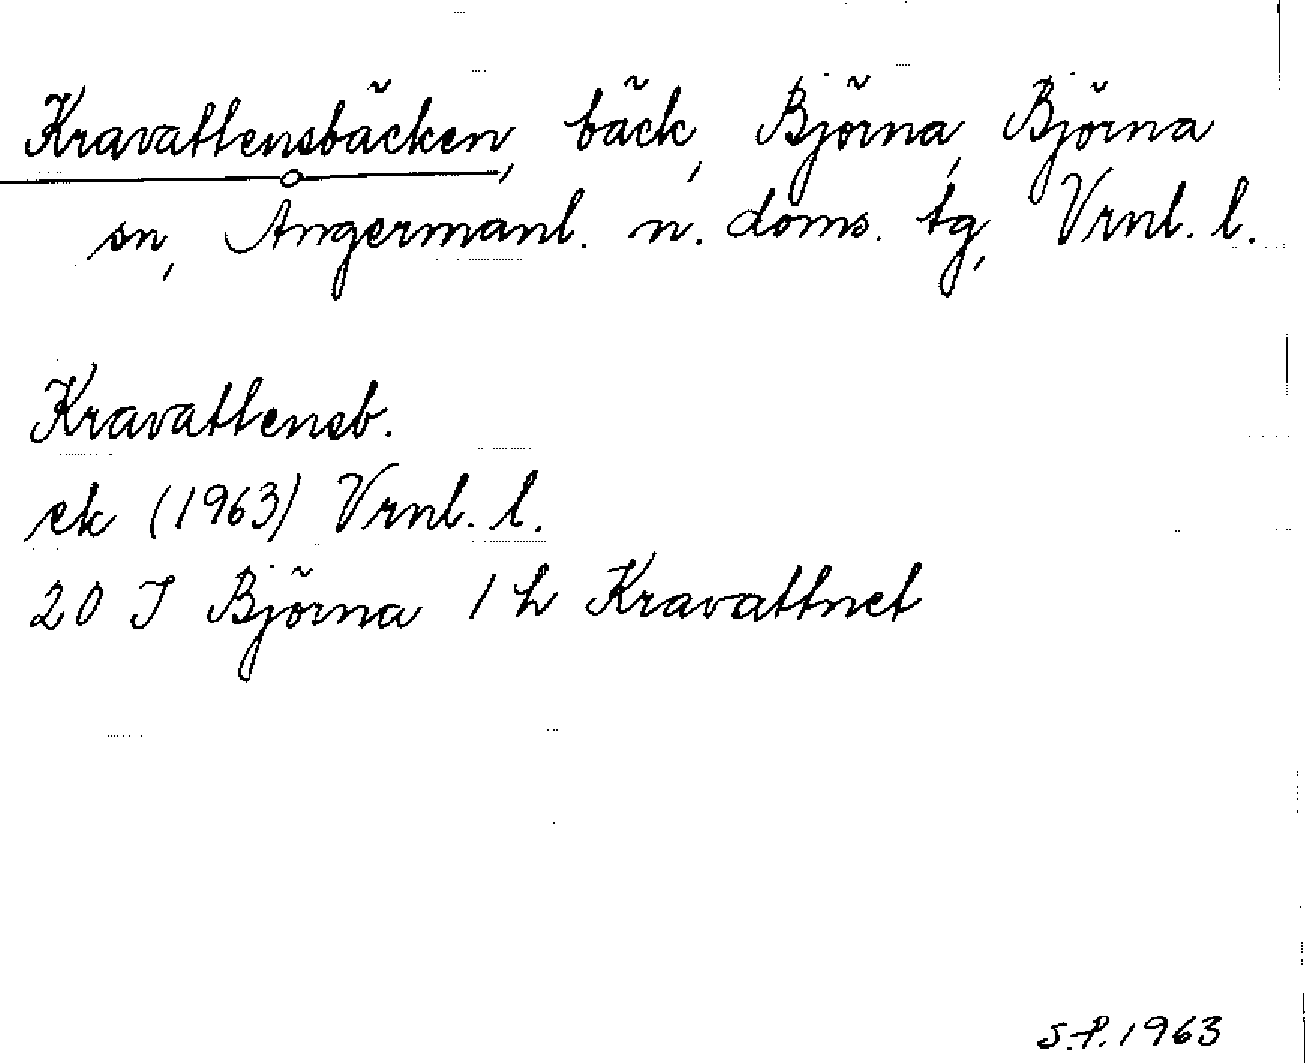 Kravattensbäcken, bäck, Björna, Björna
sn, Ångermanl. n. doms. tg, Vrnl. l.
Kravattensb.
ek (1963) Vrnl. l.
20 I Björna 1 h Kravattnet
S.P. 1963